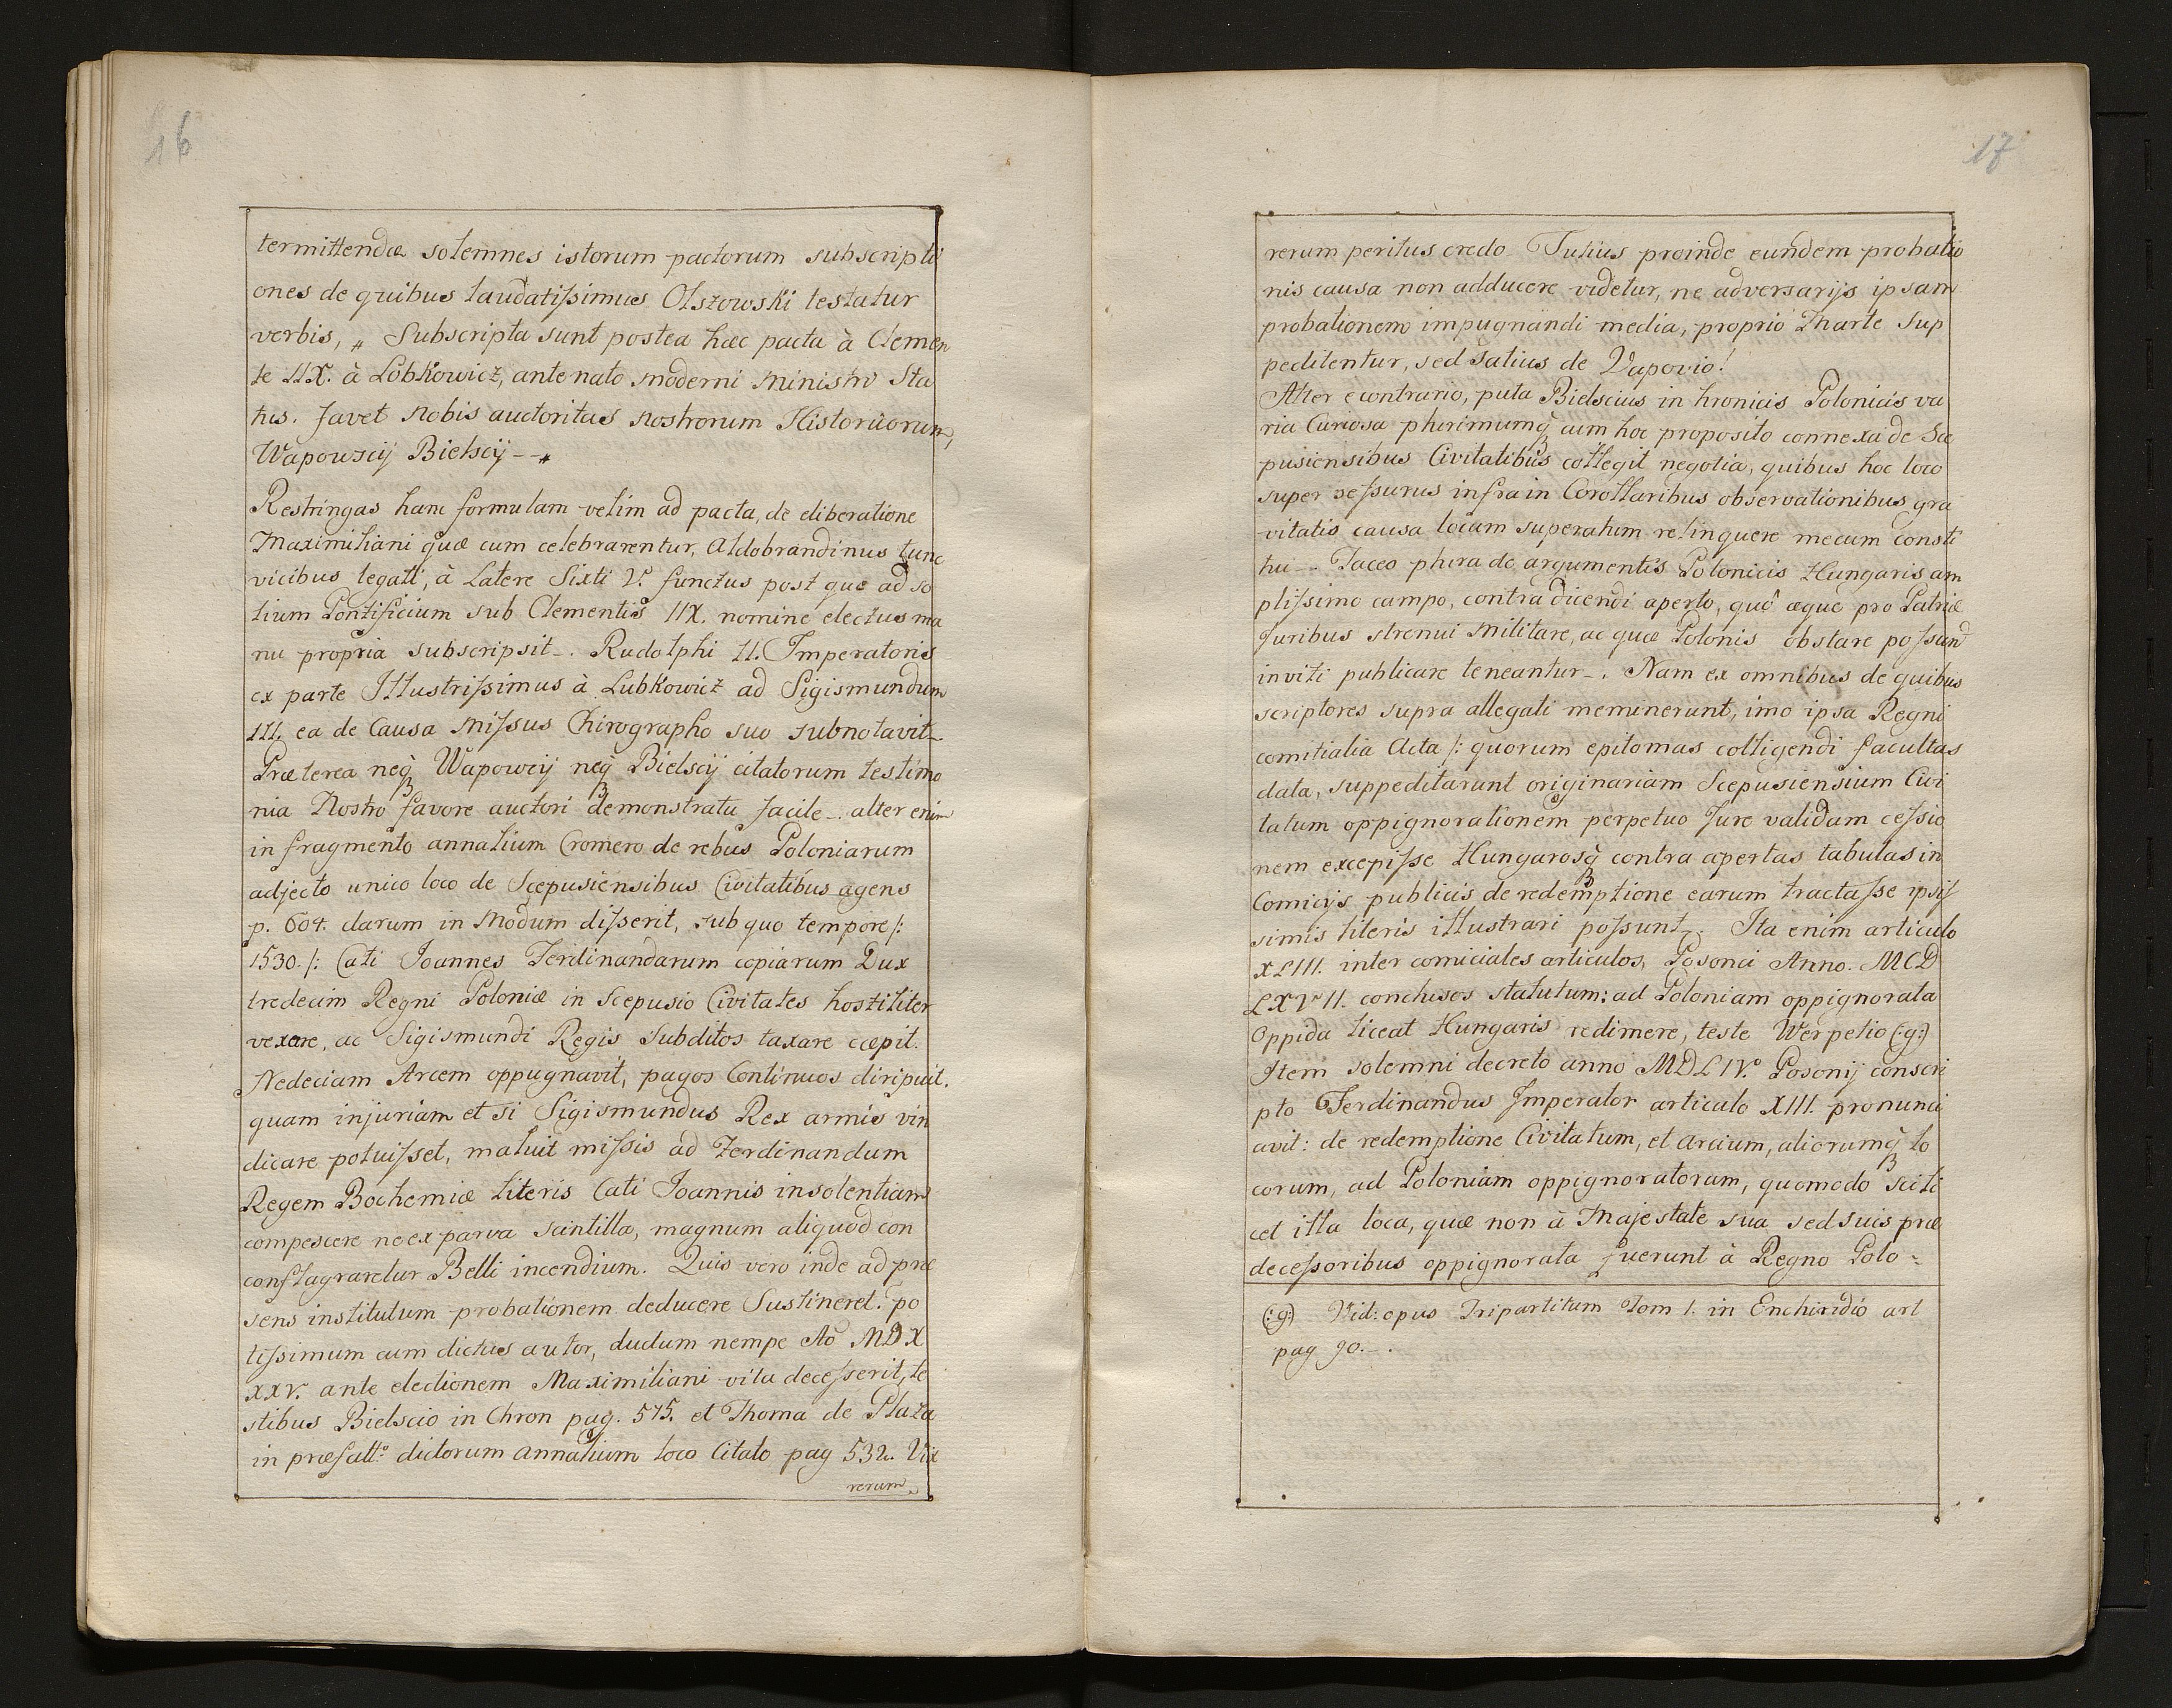 16
termittendæ solemnes istorum pactorum subscripti
ones de quibus laudatissimus Olszowski testatur
verbis, „ Subscripta sunt postea hæc pacta à Clemen
te IIX. à Lobkowicz, antenato moderni Ministri Sta
tus. favet nobis auctoritas nostrorum Historicorum,
Wapowscij Bielscij - - „
Restringas hanc formulam velim ad pacta, de eliberatione
Maximiliani quæ cum celebrarentur, Aldobrandinus tunc
vicibus legati, à Latere Sixti V. functus post quæ ad so
lium Pontificium sub Clementis IIX. nomine electus ma
nu propria subscripsit -. Rudolphi II. Imperatoris
ex parte Illustrissimus à Lubkowicz ad Sigismundum
III. ea de Causa missus Chirographo suo subnotavit -.
Præterea neq₃ Wapowcij neq₃ Bielscij citatorum testimo
nia Nostro favore auctori demonstratu facile -. alter enim
in fragmento annalium Cromero de rebus Poloniarum
adjecto unico loco de Scepusiensibus Civitatibus agens
p. 604. darum in Modum disserit, sub quo tempore /:
1530. /: Cati Joannes Ferdinandarum copiarum Dux
tredecim Regni Poloniæ in Scepusio Civitates hostiliter
vexare, ac Sigismundi Regis subditos taxare cæpit.
Nedeciam Arcem oppugnavit, pagos Continuos diripuit.
quam injuriam et si Sigismundus Rex armis vin
dicare potuisset, maluit missis ad Ferdinandum
Regem Bochemiæ literis Cati Joannis insolentiam
compescere ne ex parva scintilla, magnum aliquod con
conflagraretur Belli incendium. Quis vero inde ad præ
sens institutum probationem deducere Sustineret. po
tissimum cum dictus autor, dudum nempe Ao MDX
XXV. ante electionem Maximiliani vita decesserit, te
stibus Bielscio in Chron pag. 575. et Thoma de Plaza
in præfatt: dictorum annalium loco Citato pag 532. Vix
rerum
17
rerum peritus credo Tutius proinde eundem probatio
nis causa non adducere videtur, ne adversarijs ipsam
probationem impugnandi media, proprio Marte sup
peditentur, sed satius de Vapovio!
Alter e contrario, puta Bielscius in hronicis Polonicis va
ria Curiosa plurimumq₃ cum hoc proposito connexa de Sce
pusiensibus Civitatibus collegit negotia, quibus hoc loco
super sessurus infra in Corollaribus observationibus gra
vitatis causa locum superatum relinquere mecum consti
tui -. Taceo plura de argumentis Polonicis Hungaris am
plissimo campo, contradicendi aperto, quô æque pro Patriæ
Juribus strenui Militare, ac quæ Polonis obstare possunt
inviti publicare teneantur -. Nam ex omnibus de quibus
scriptores supra allegati meminerunt, imo ipsa Regni
comitialia Acta /: quorum epitomas colligendi facultas
data, suppeditarunt originariam Scepusiensium Civi
tatum oppignorationem perpetuo Jure validam cessio
nem excepisse Hungarosq₃ contra apertas tabulas in
Comicijs publicis de redemptione earum tractasse ipsis
simis literis illustrari possunt -. Ita enim articulo
XLIII. inter comiciales articulos, Posonci Anno. MCD
LXVII. conclusos statutum: ad Poloniam oppignorata
Oppida liceat Hungaris redimere, teste Werpetio (:g:)
Item solemni decreto anno MDLIV. Posonij conscri
pto Ferdinandus Imperator articulo XIII. pronunci
avit: de redemptione Civitatum, et arcium, aliorumq₃ lo
corum, ad Poloniam oppignoratorum, quomodo scili
cet illa loca, quæ non à Majestate sua sed suis præ
decessoribus oppignorata fuerunt à Regno Polo =
(:g:) Vid: opus Tripartitum Tom I. in Enchiridio art
pag 90. -.